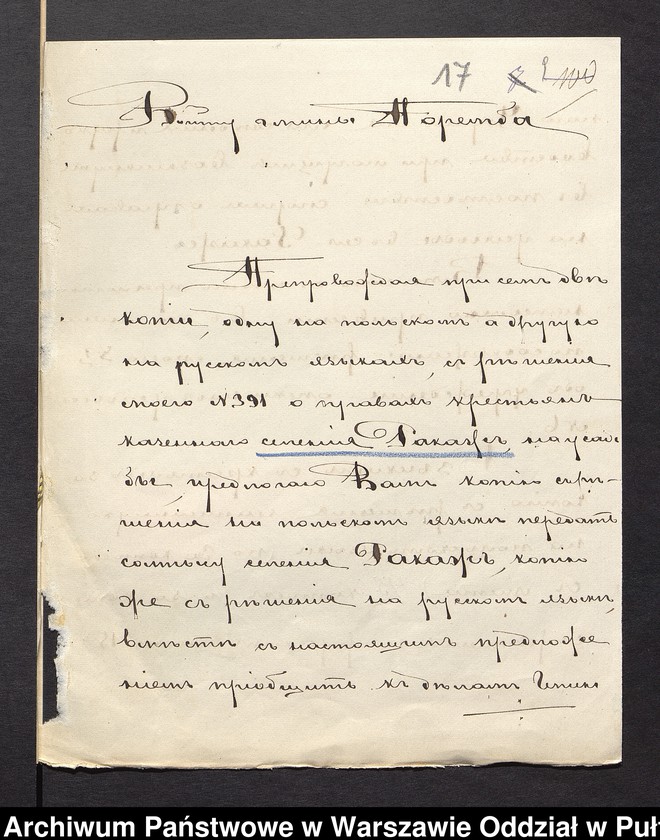 17
Войту гмины Поремба
Препровождая при семъ двѣ
копіи, одну на польскомъ а другую
на русскомъ языкахъ, съ рѣшенія
моего №391 о правахъ крестьянъ
казеннаго селенія Гакажъ, на усадь
бы, предлогаю Вамъ копію съ рѣ-
шенія на польскомъ языкѣ передать
солтысу селенія Гакажъ, копію
же съ рѣшенія на русскомъ языкѣ,
вмѣстѣ съ настоящимъ предложе
ніемъ пріобщить къ дѣламъ Гмины
Archiwum Państwowe w Warszawie Oddział w Puł